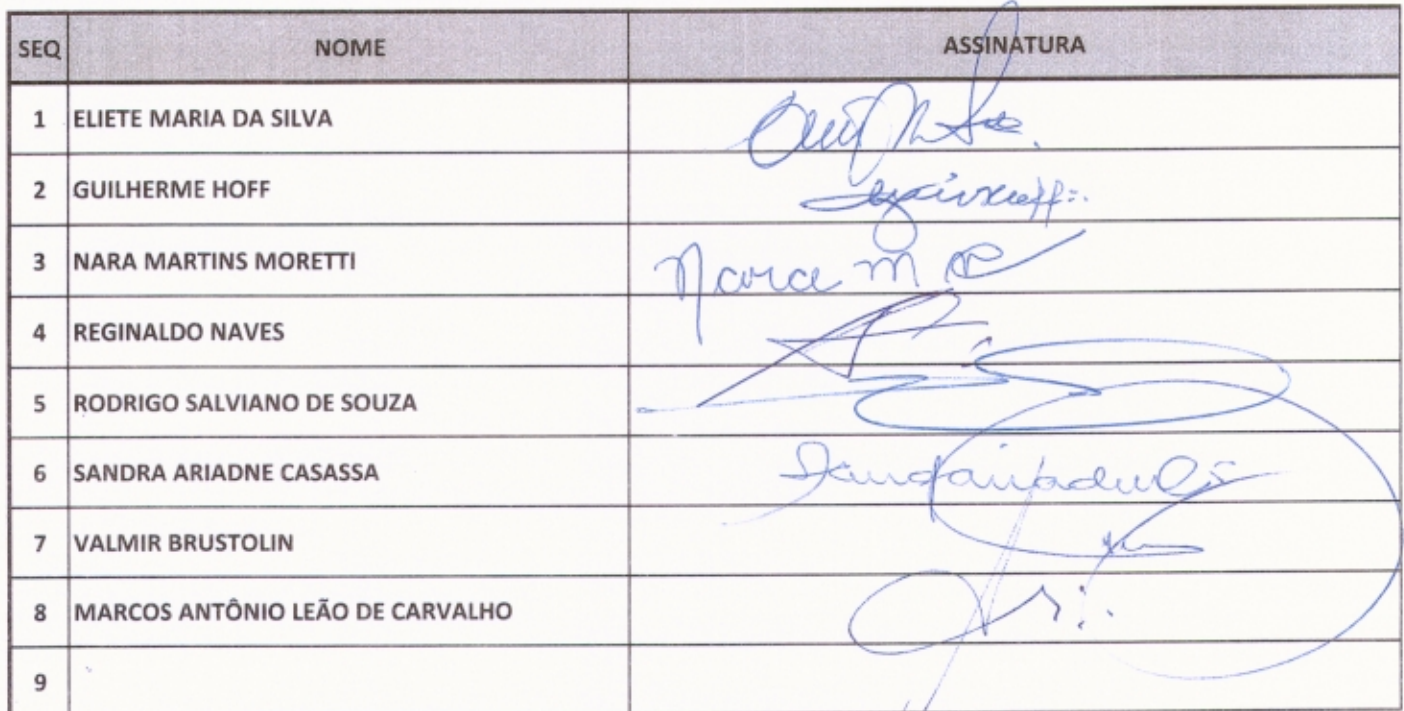 SEQ NOME ASSINATURA
1 ELIETE MARIA DA SILVA
2 GUILHERME HOFF
3 NARA MARTINS MORETTI Nara M
4 REGINALDO NAVES
5 RODRIGO SALVIANO DE SOUZA
6 SANDRA ARIADNE CASASSA
7 VALMIR BRUSTOLIN
8 MARCOS ANTÔNIO LEÃO DE CARVALHO
9